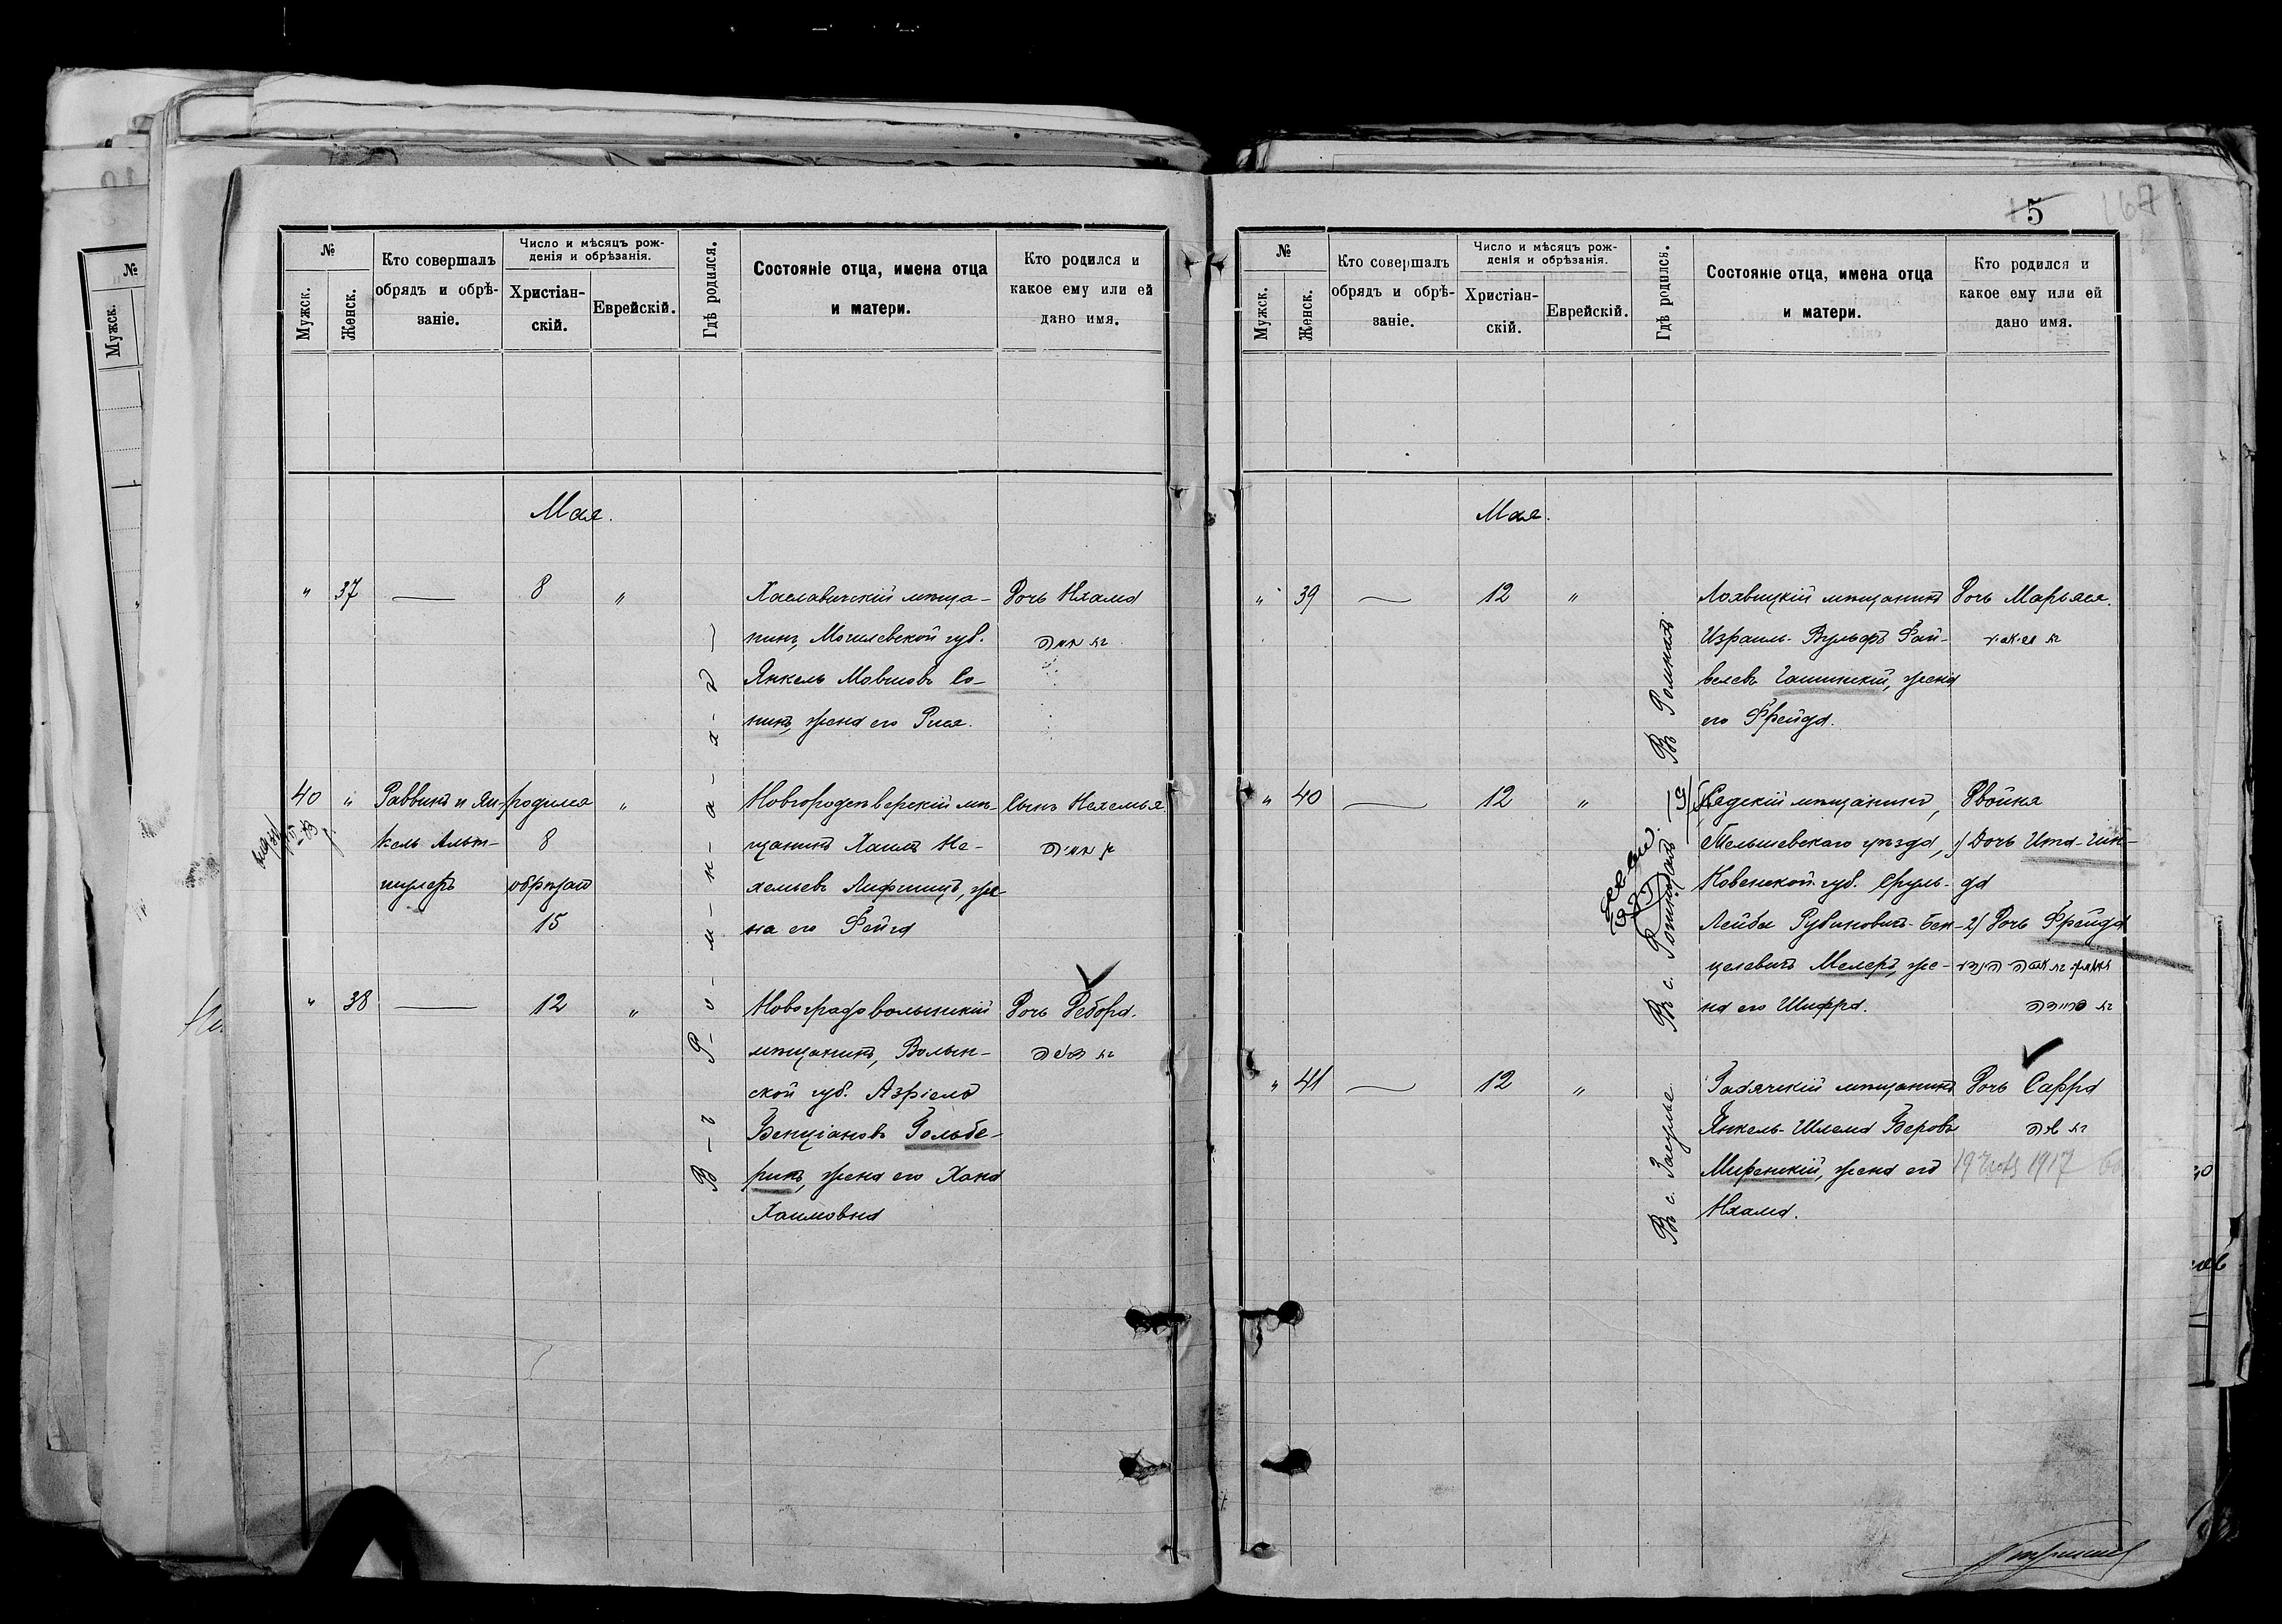 №
Мужск.
Женск.
Кто совершалъ
обрядъ и обрѣ-
заніе.
Число и мѣсяцъ рож-
денія и обрѣзанія.
Христіан-
скій.
Еврейскій.
Гдѣ родился.
Состояніе отца, имена отца
и матери.
Кто родился и
какое ему или ей
дано имя.
Мая.
В-ъ Р-о-м-н-а-х-ъ
" 37 — 8 "
Хаславичскій мѣща-
нинъ, Могилевской губ.
Янкель Мовшовъ Со-
нинъ, жена его Рися.
Дочь Нхама
40 "
Раввинъ и Ян-
кель Альт-
шулеръ
родился
8
обрѣзан
15
"
Новгородсѣверскій мѣ-
щанинъ Хаимъ Не-
хемьевъ Лифшицъ, же-
на его Фейга
Сынъ Нехемья
" 38 — 12 "
Новоградволынскій
мѣщанинъ, Волын-
ской губ. Азріель
Бенціановъ Гольбе-
ринъ, жена его Хана
Хаимовна
Дочь Дебора.
5
167
№
Мужск.
Женск.
Кто совершалъ
обрядъ и обрѣ-
заніе.
Число и мѣсяцъ рож-
денія и обрѣзанія.
Христіан-
скій.
Еврейскій.
Гдѣ родился.
Состояніе отца, имена отца
и матери.
Кто родился и
какое ему или ей
дано имя.
Мая.
" 39 — 12 "
Въ Ромнахъ.
Лохвицкій мѣщанинъ
Израиль-Вульфъ Фай-
велевъ Гашинскій, жена
его Фрейда.
Дочь Марьяся.
" 40 — 12 "
Въ с.
Сядскій мѣщанинъ,
Тельшевскаго уѣзда,
Ковенской губ. Сруль-
Лейба Рубиновичъ-Бен-
целевичъ Мелеръ, же-
на его Шифра.
Двойня
1) Дочь Ита-Гин-
да
2) Дочь Фрейда
" 41 — 12 "
Въ с. Засулье
Гадячскій мѣщанинъ
Янкель-Шлема Беровъ
Миренскій, жена его
Нхама.
Дочь Сарра
1917